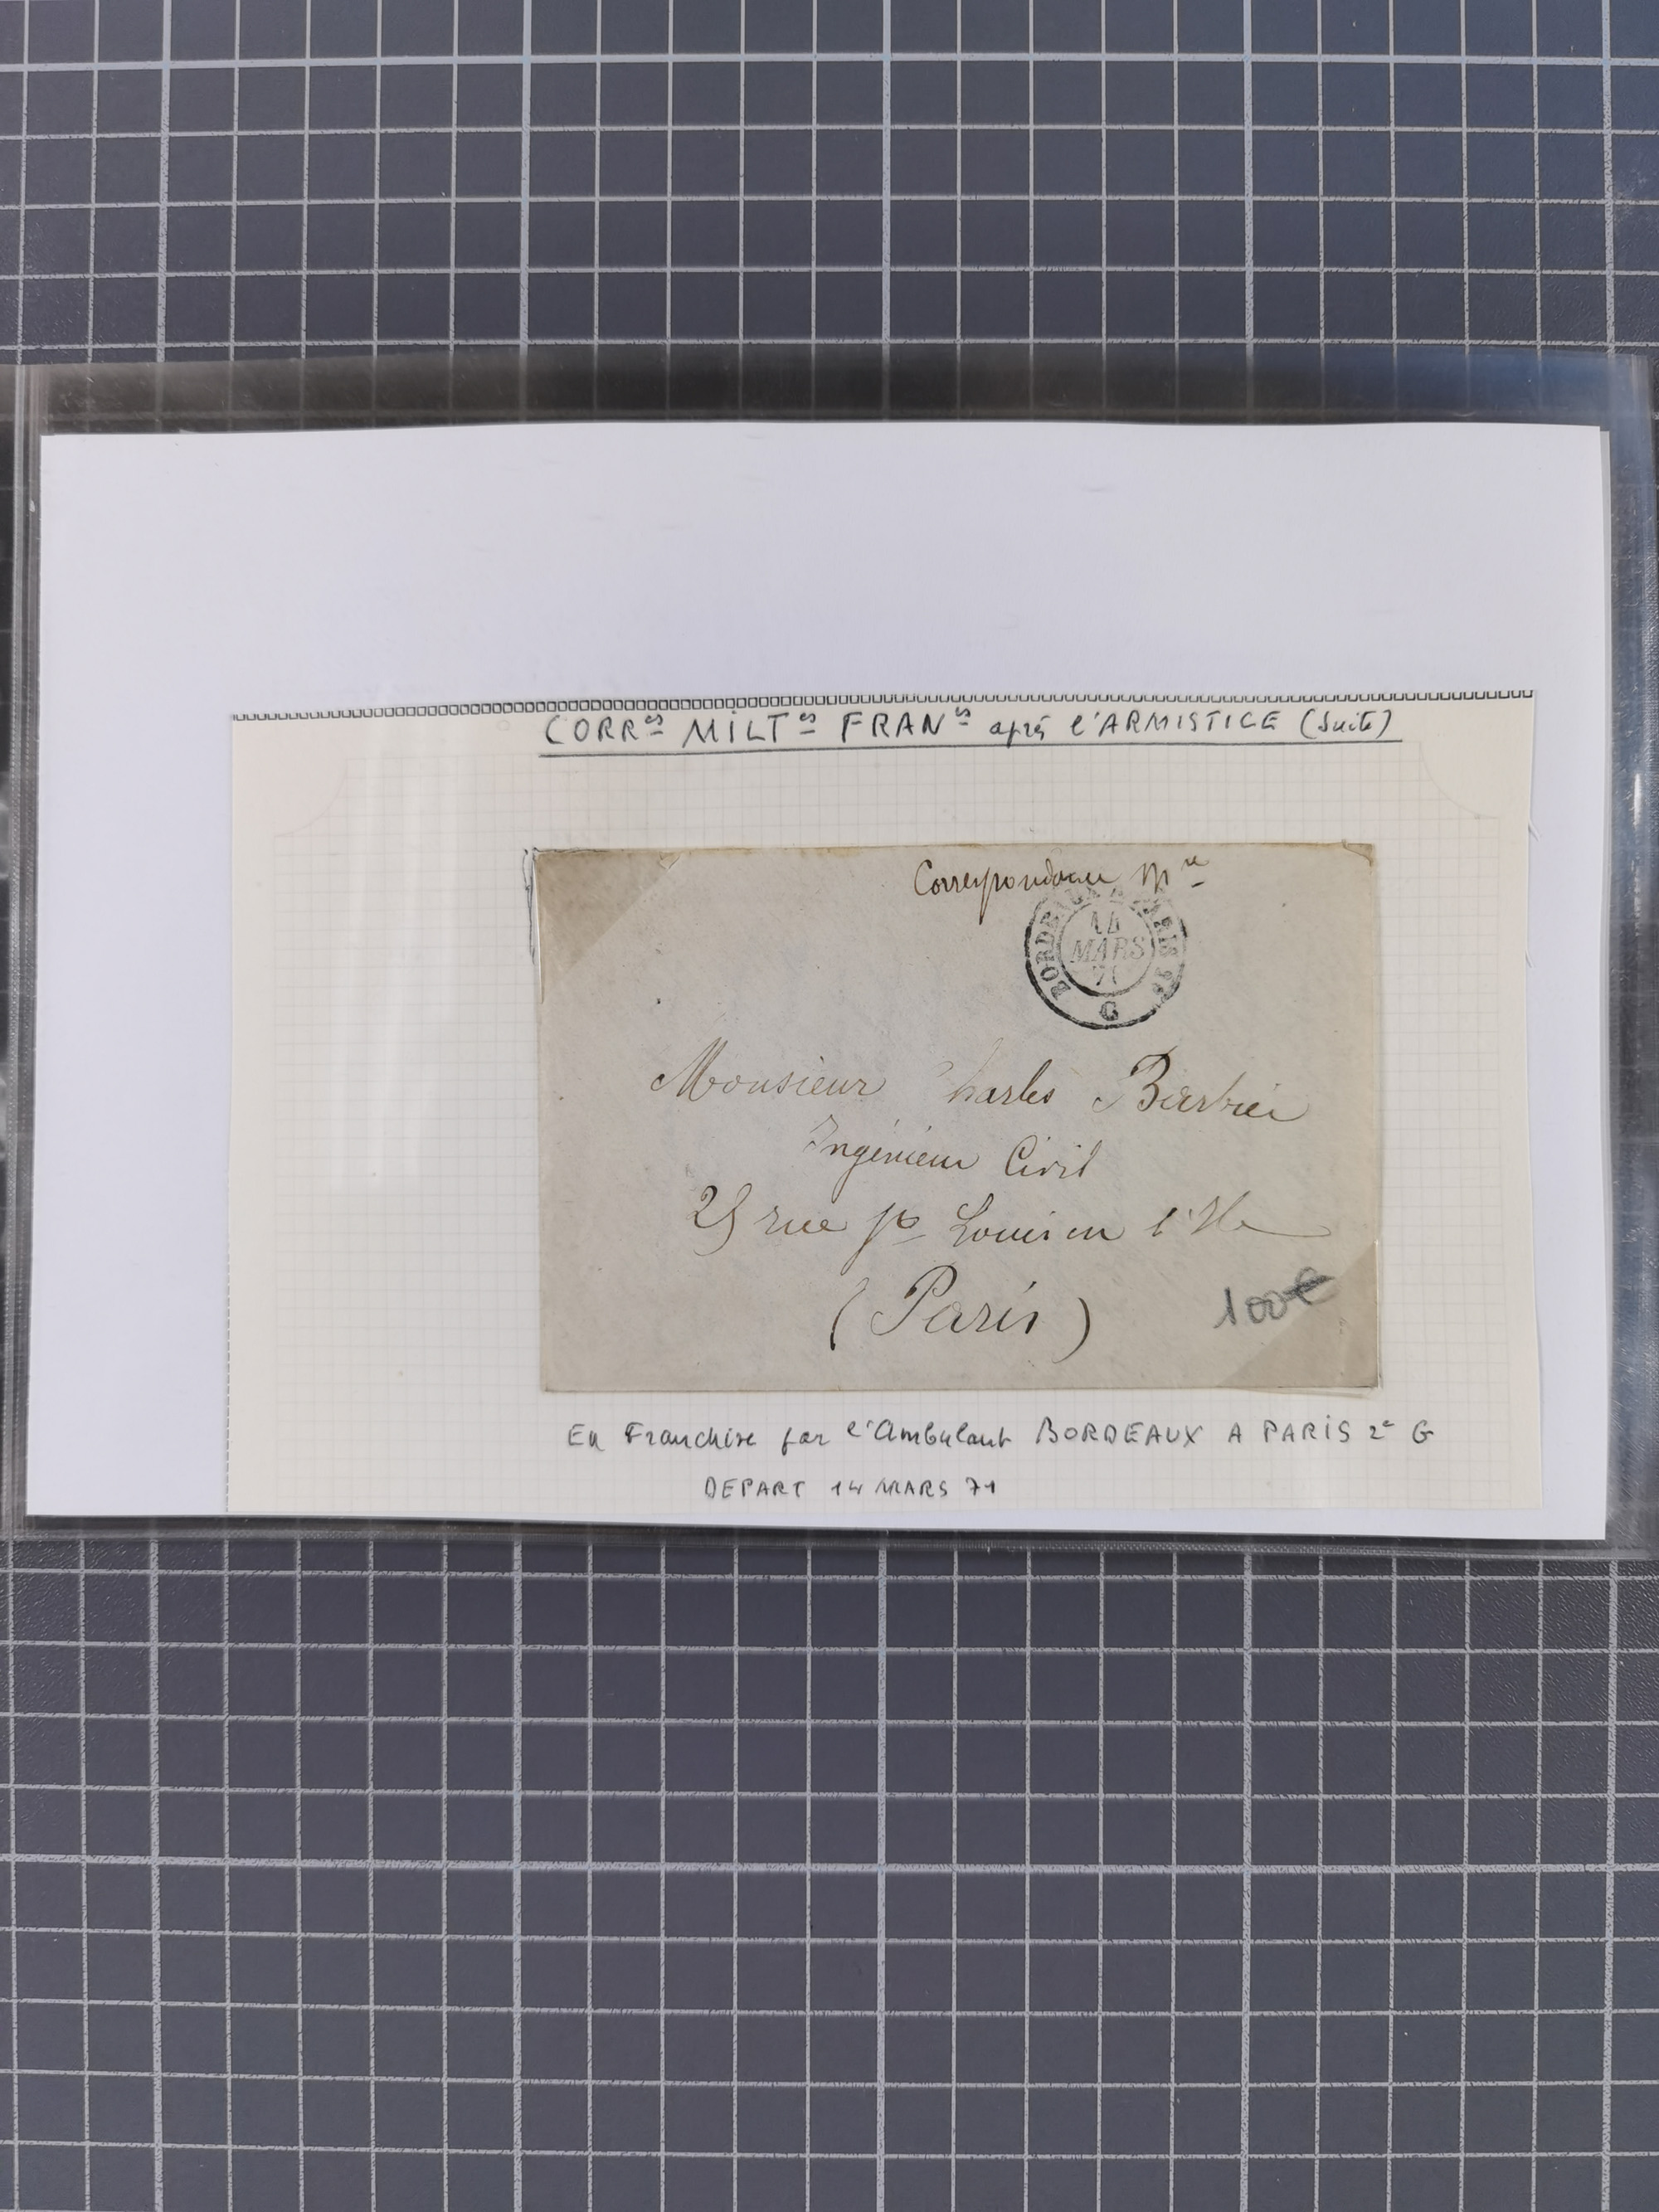 CORRes MILTes FRANes aprés l'ARMISTICE (Suite)
Correspondance Mre
BORDEAUX A PARIS
14
MARS
71
G
Monsieur Charles Barbier
Ingénieur Civil
25 rue St Louis en l'Ile
(Paris)
100€
En Franchise par l'Ambulant BORDEAUX A PARIS 2e G
DEPART 14 MARS 71